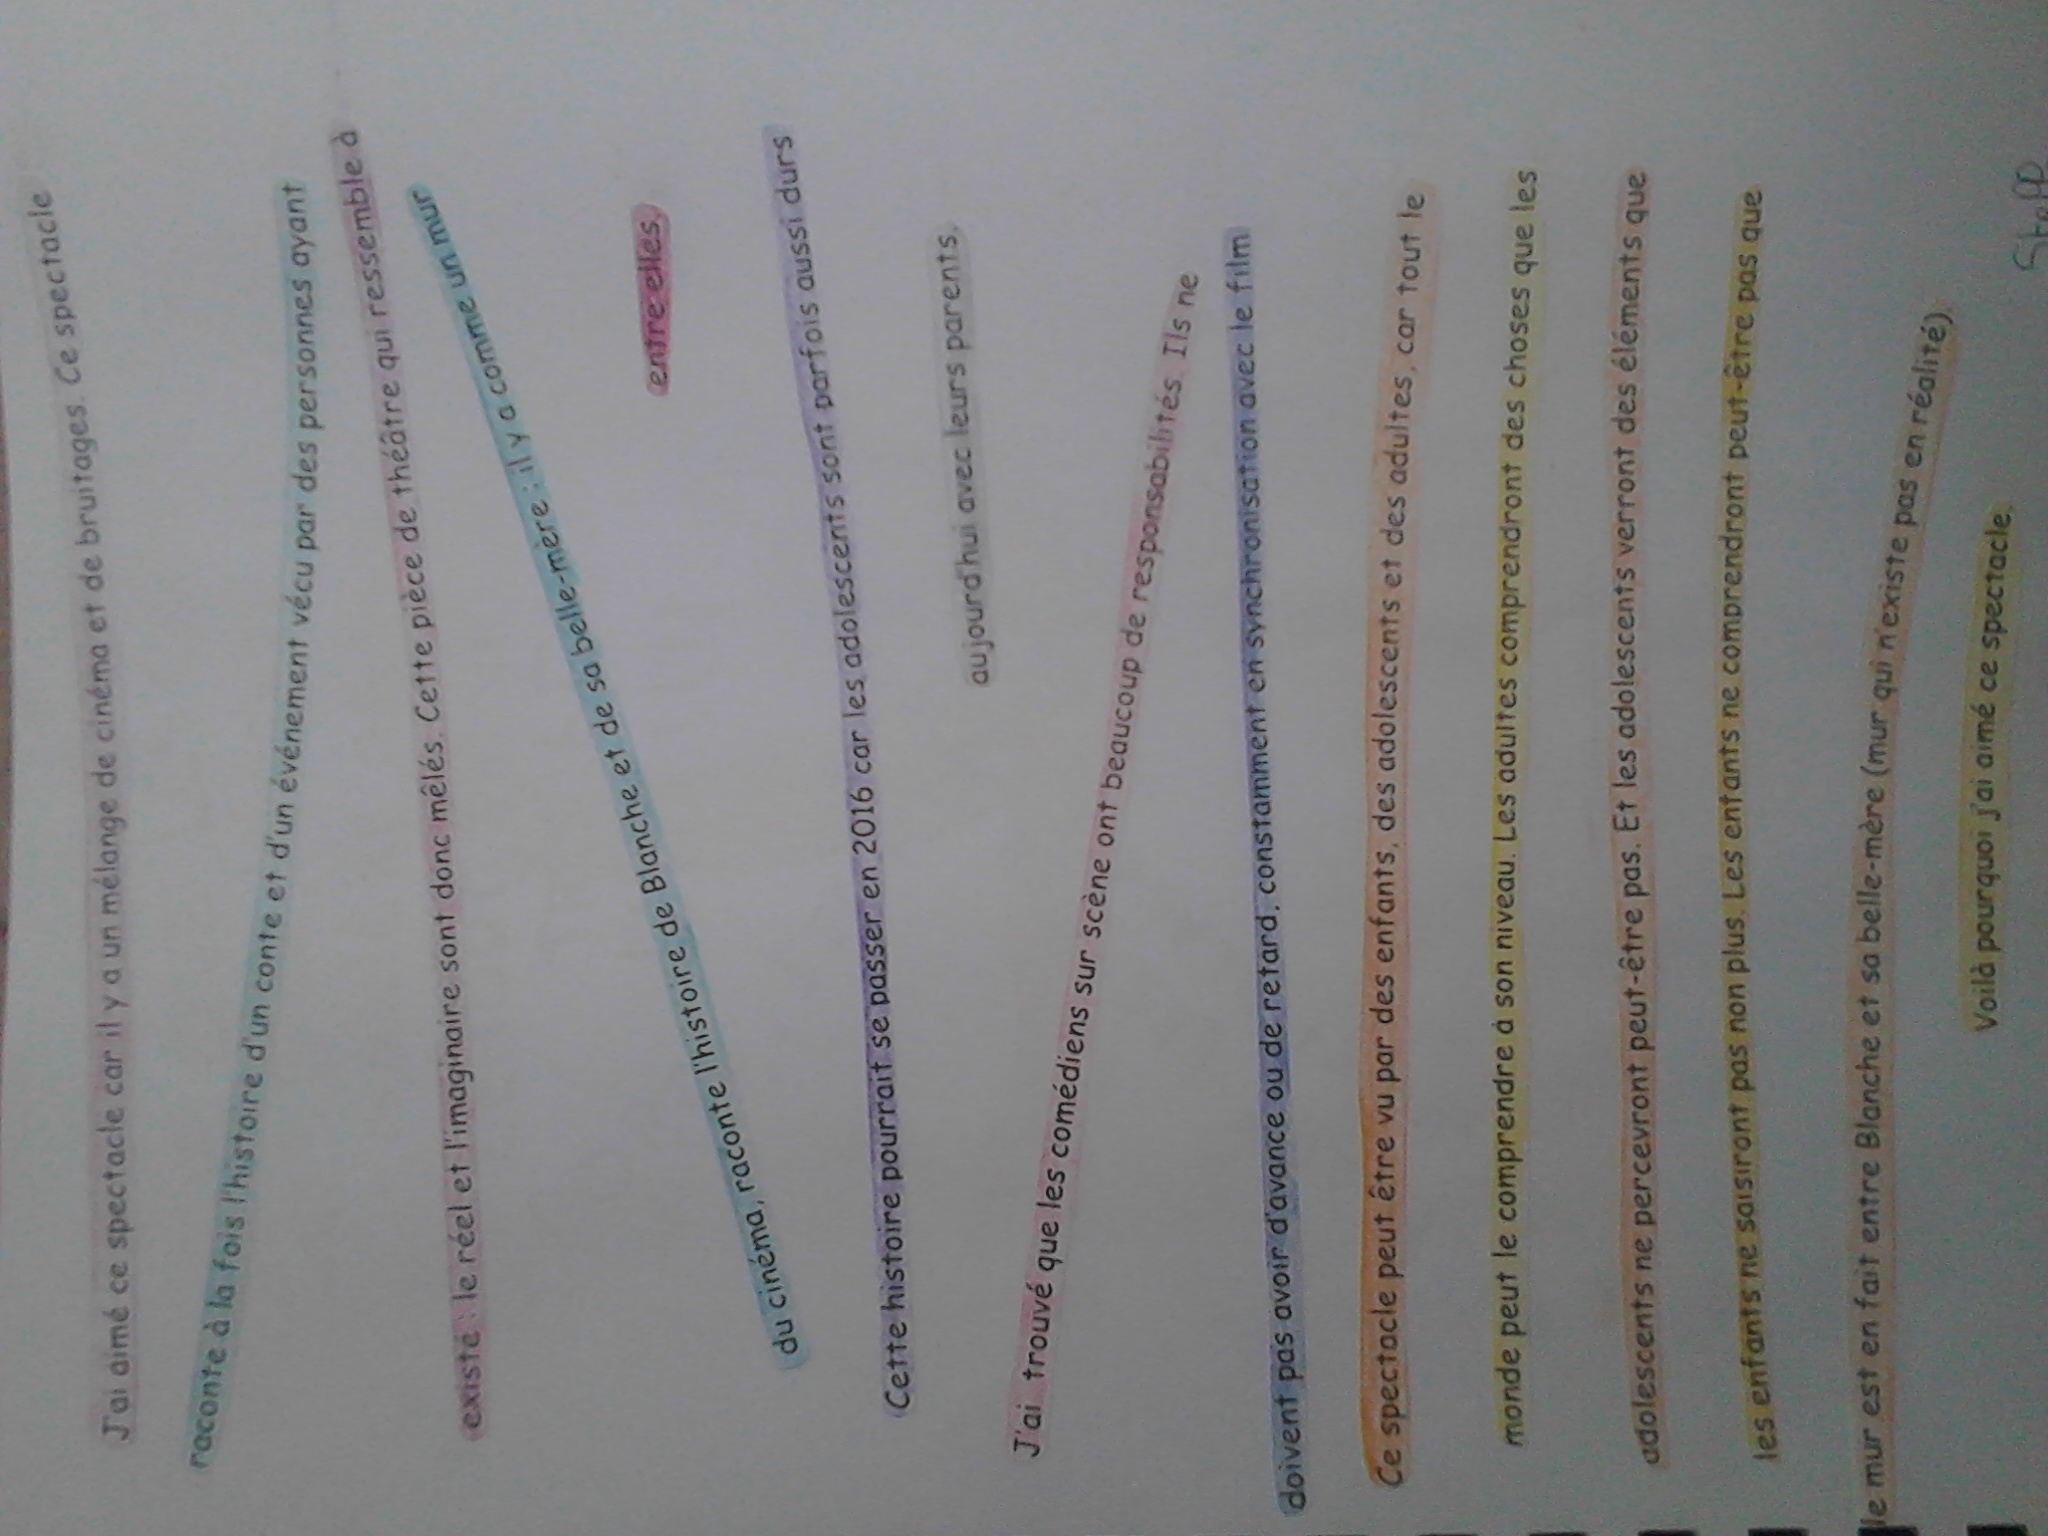 J'ai aimé ce spectacle car il y a un mélange de cinéma et de bruitages. Ce spectacle
raconte à la fois l'histoire d'un conte et d'un événement vécu par des personnes ayant
existé : le réel et l'imaginaire sont donc mêlés. Cette pièce de théâtre qui ressemble à
du cinéma, raconte l'histoire de Blanche et de sa belle-mère : il y a comme un mur
entre elles.
Cette histoire pourrait se passer en 2016 car les adolescents sont parfois aussi durs
aujourd'hui avec leurs parents.
J'ai trouvé que les comédiens sur scène ont beaucoup de responsabilités. Ils ne
doivent pas avoir d'avance ou de retard, constamment en synchronisation avec le film
Ce spectacle peut être vu par des enfants, des adolescents et des adultes, car tout le
monde peut le comprendre à son niveau. Les adultes comprendront des choses que les
adolescents ne percevront peut-être pas. Et les adolescents verront des éléments que
les enfants ne saisiront pas non plus. Les enfants ne comprendront peut-être pas que
le mur est en fait entre Blanche et sa belle-mère (mur qui n'existe pas en réalité).
Voilà pourquoi j'ai aimé ce spectacle.